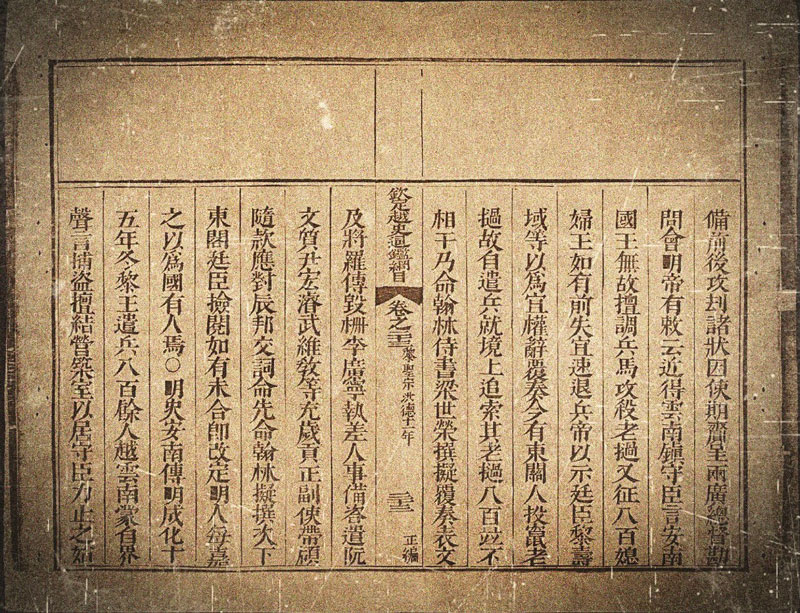 備前後攻刼諸狀因使期齎呈兩廣總督勘
問會明帝有敕云近得雲南鎮守臣言安南
國王無故擅調兵馬攻殺老撾又征八百媳
婦王如有前失宜速退兵帝以示廷臣黎壽
域等以爲宜權辭覆奏今有東關人投竄老
撾故自遣兵就境上追索其老撾八百並不
相干乃命翰林侍書梁世榮撰擬覆奏表文
欽定越史通鑑綱目 卷之二十三 黎聖宗洪德十一年 二十三 正編
及將羅傳毀柵李廣寧執差人事備咨遣阮
文質尹宏濬武維敎等充歲貢正副使帶領
隨款應對辰邦交詞命先命翰林擬撰次下
東閣廷臣撿閱如有未合即改定明人每嘉
之以爲國有人焉○明史安南傳明成化十
五年冬黎王遣兵八百餘人越雲南蒙自界
聲言捕盜擅結營築室以居守臣力止之始